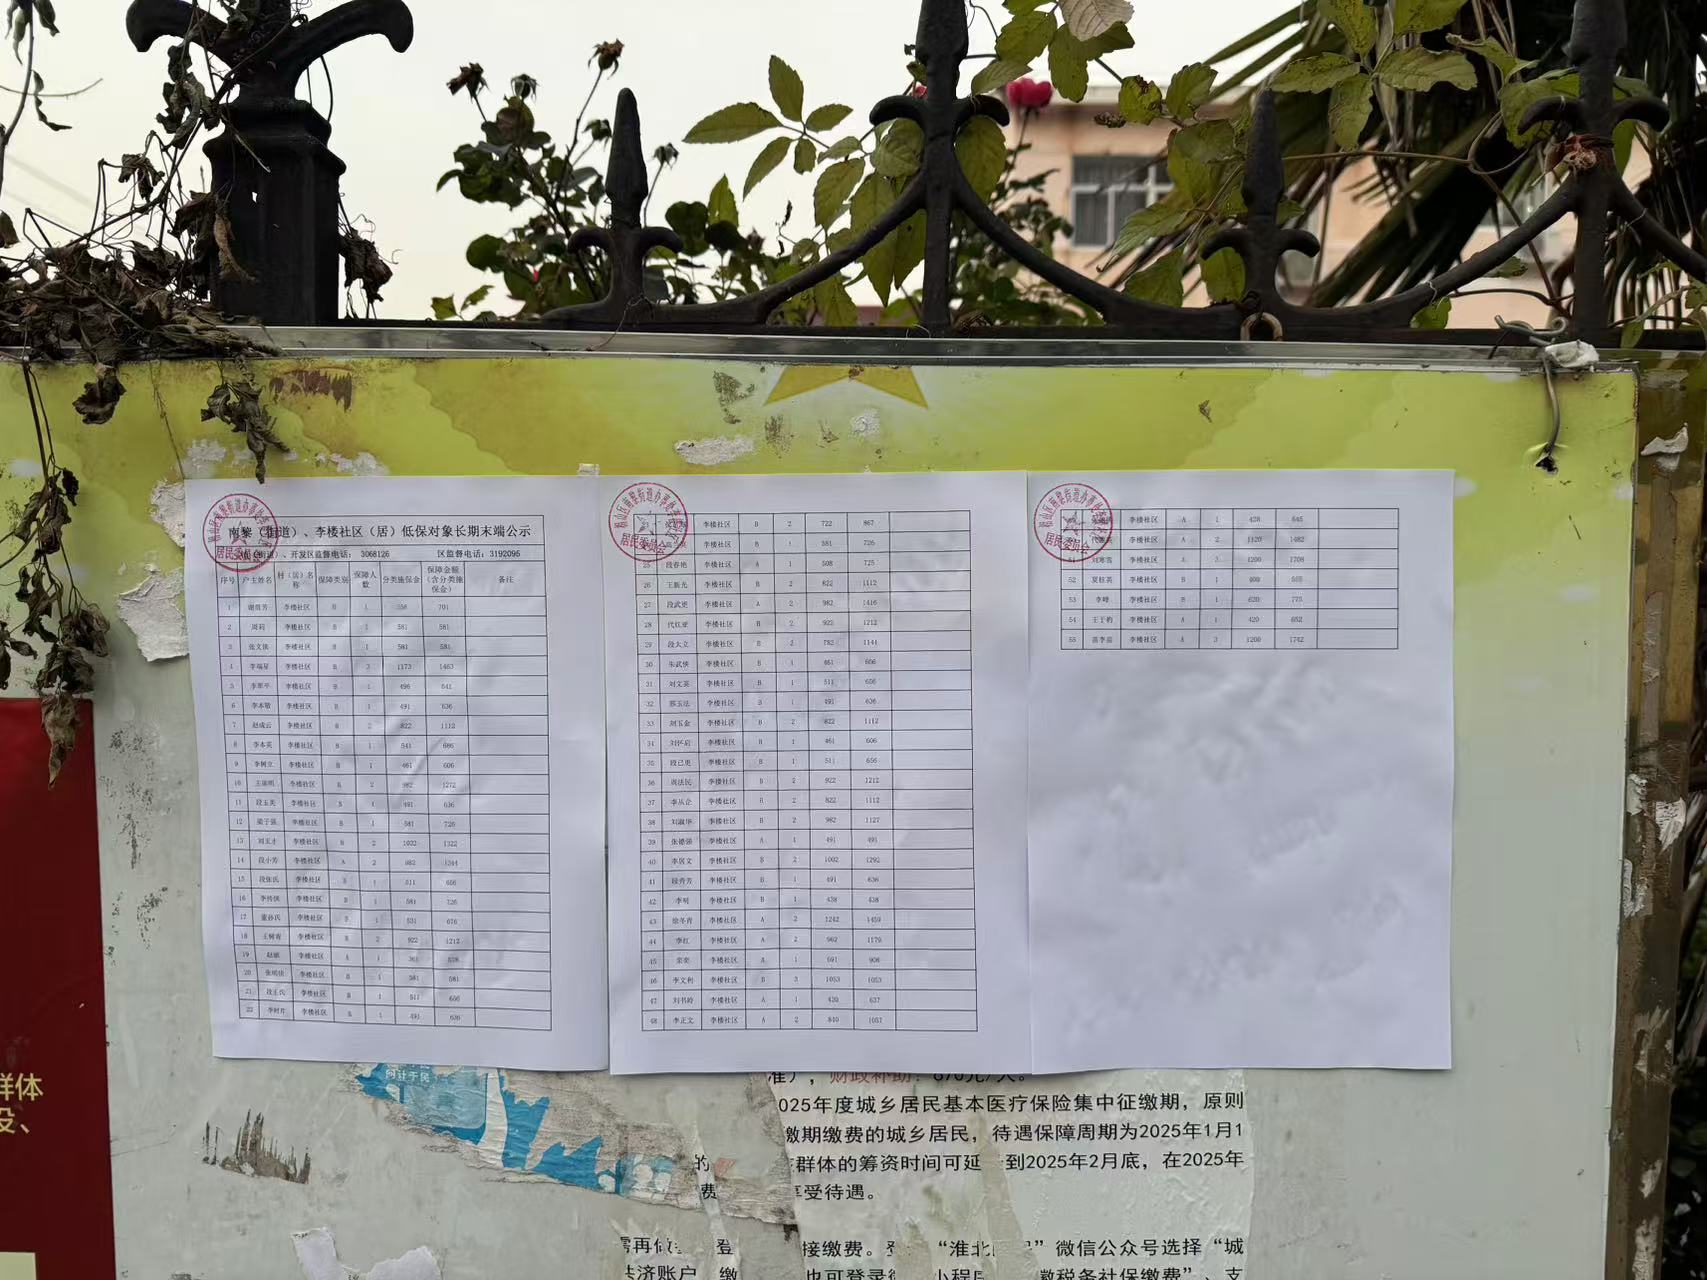 南黎（街道）、李楼社区（居）低保对象长期末端公示
（街道）、开发区监督电话： 3068126 区监督电话：3192096
序号 户主姓名 村（居）名称 保障类别 保障人数 分类施保金 保障金额（含分类施保金） 备注
1 李楼社区 B 1 556 701
2 周莉 李楼社区 B 1 581 581
3 张文侠 李楼社区 B 1 581 581
4 李瑞星 李楼社区 B 3 1173 1463
5 李翠平 李楼社区 B 1 496 641
6 李本敬 李楼社区 B 1 491 636
7 赵成云 李楼社区 B 2 822 1112
8 李本英 李楼社区 B 1 541 686
9 李树立 李楼社区 B 1 461 606
10 李楼社区 B 2 982 1272
11 段玉美 李楼社区 B 1 491 636
12 梁于强 李楼社区 B 1 581 726
13 刘玉才 李楼社区 B 2 1032 1322
14 段小芳 李楼社区 A 2 982 1344
15 段张氏 李楼社区 B 1 511 656
16 李传侠 李楼社区 B 1 581 726
17 董孙氏 李楼社区 B 1 531 676
18 王树青 李楼社区 B 2 922 1212
19 赵丽 李楼社区 A 1 361
20 李楼社区 B 1 581 581
21 段王氏 李楼社区 B 1 511 656
22 李楼社区 B 1 491 636
李楼社区 B 2 722 867
李楼社区 B 1 581 726
25 段春艳 李楼社区 A 1 508 725
26 王新光 李楼社区 B 2 822 1112
27 段武更 李楼社区 A 2 982 1416
28 代红亚 李楼社区 B 2 922 1212
29 段大立 李楼社区 B 2 782 1144
30 朱武侠 李楼社区 B 1 461 606
31 刘文英 李楼社区 B 1 511 656
32 邢玉法 李楼社区 B 1 491 636
33 刘玉金 李楼社区 B 2 822 1112
34 刘怀启 李楼社区 B 1 461 606
35 段已更 李楼社区 B 1 511 656
36 周法民 李楼社区 B 2 922 1212
37 李从企 李楼社区 B 2 822 1112
38 刘淑华 李楼社区 B 2 982 1127
39 张德强 李楼社区 A 1 491 491
40 李居文 李楼社区 B 2 1002 1292
41 段秀芳 李楼社区 B 1 491 636
42 李明 李楼社区 B 1 438 438
43 徐冬青 李楼社区 A 2 1242 1459
44 李红 李楼社区 A 2 962 1179
45 栾奕 李楼社区 A 1 691 908
46 李文利 李楼社区 B 3 1053 1053
47 刘书岭 李楼社区 A 1 420 637
48 李正文 李楼社区 A 2 840 1057
李楼社区 A 1 428 645
李楼社区 A 2 1120 1482
51 刘寒雪 李楼社区 A 3 1200 1708
52 夏桂英 李楼社区 B 1 400
53 李峰 李楼社区 B 1 620 775
54 王于豹 李楼社区 A 1 420 652
55 苗李茹 李楼社区 A 3 1200 1742
居民委员会
居民委员会
居民委员会
准），财政补助：670元/人。
025年度城乡居民基本医疗保险集中征缴期，原则
缴期缴费的城乡居民，待遇保障周期为2025年1月1
群体的筹资时间可延 到2025年2月底，在2025年
费 享受待遇。
需再做 登 接缴费。 “淮北 ”微信公众号选择“城
共济账户 缴 也可登录 小程 缴税务社保缴费”、支
群体
设、